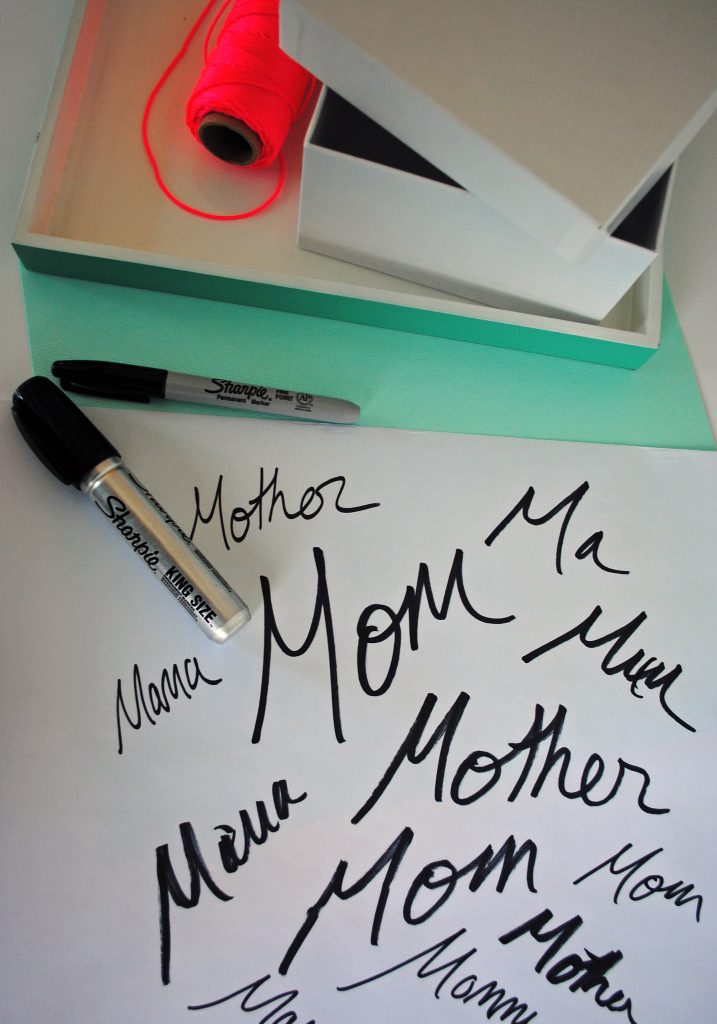 Sharpie FINE POINT AP
Permanent Marker
Sharpie KING SIZE
Mother
Ma
Mom
Mum
Mama
Mother
Mama
Mom
Mom
Mother
Ma